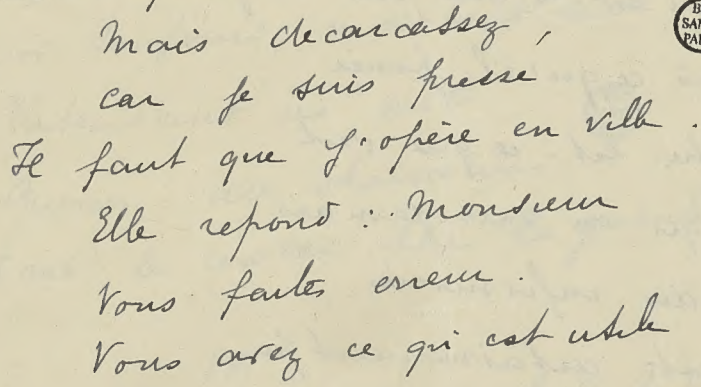 Mais decarcassez,
car je suis pressé
Il faut que j'opère en ville.
Elle repond : Monsieur
Vous faites erreur.
Vous avez ce qui est utile